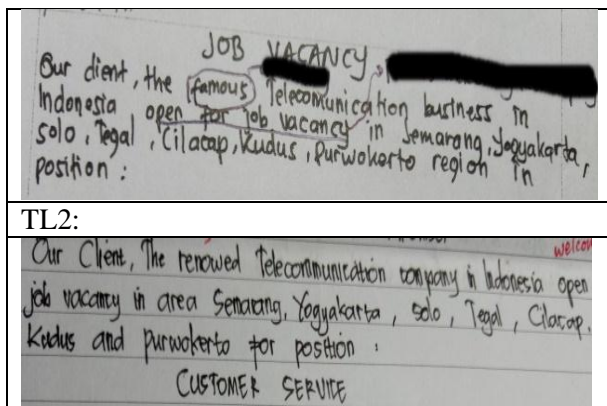 JOB VACANCY
Our client, the famous Telecomunication business in
Indonesia open for job vacancy in Semarang, Yogyakarta,
solo, Tegal, Cilacap, Kudus, Purwokerto region in
position :
TL2:
welcom
Our Client, The renowed Telecommunication company in Indonesia open
job vacancy in area Semarang, Yogyakarta, solo, Tegal, Cilacap,
Kudus and purwokerto for position :
CUSTOMER SERVICE